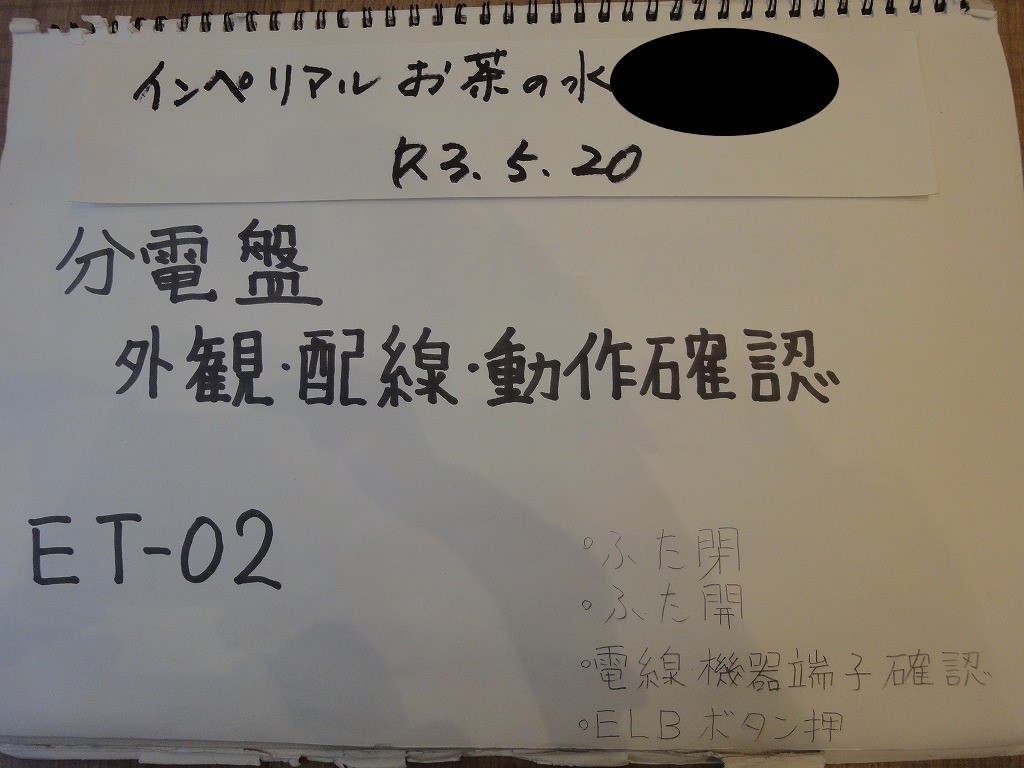 インペリアルお茶の水
R3.5.20
分電盤
外観・配線・動作確認
ET-02
・ふた閉
・ふた開
・電線機器端子確認
・ELBボタン押